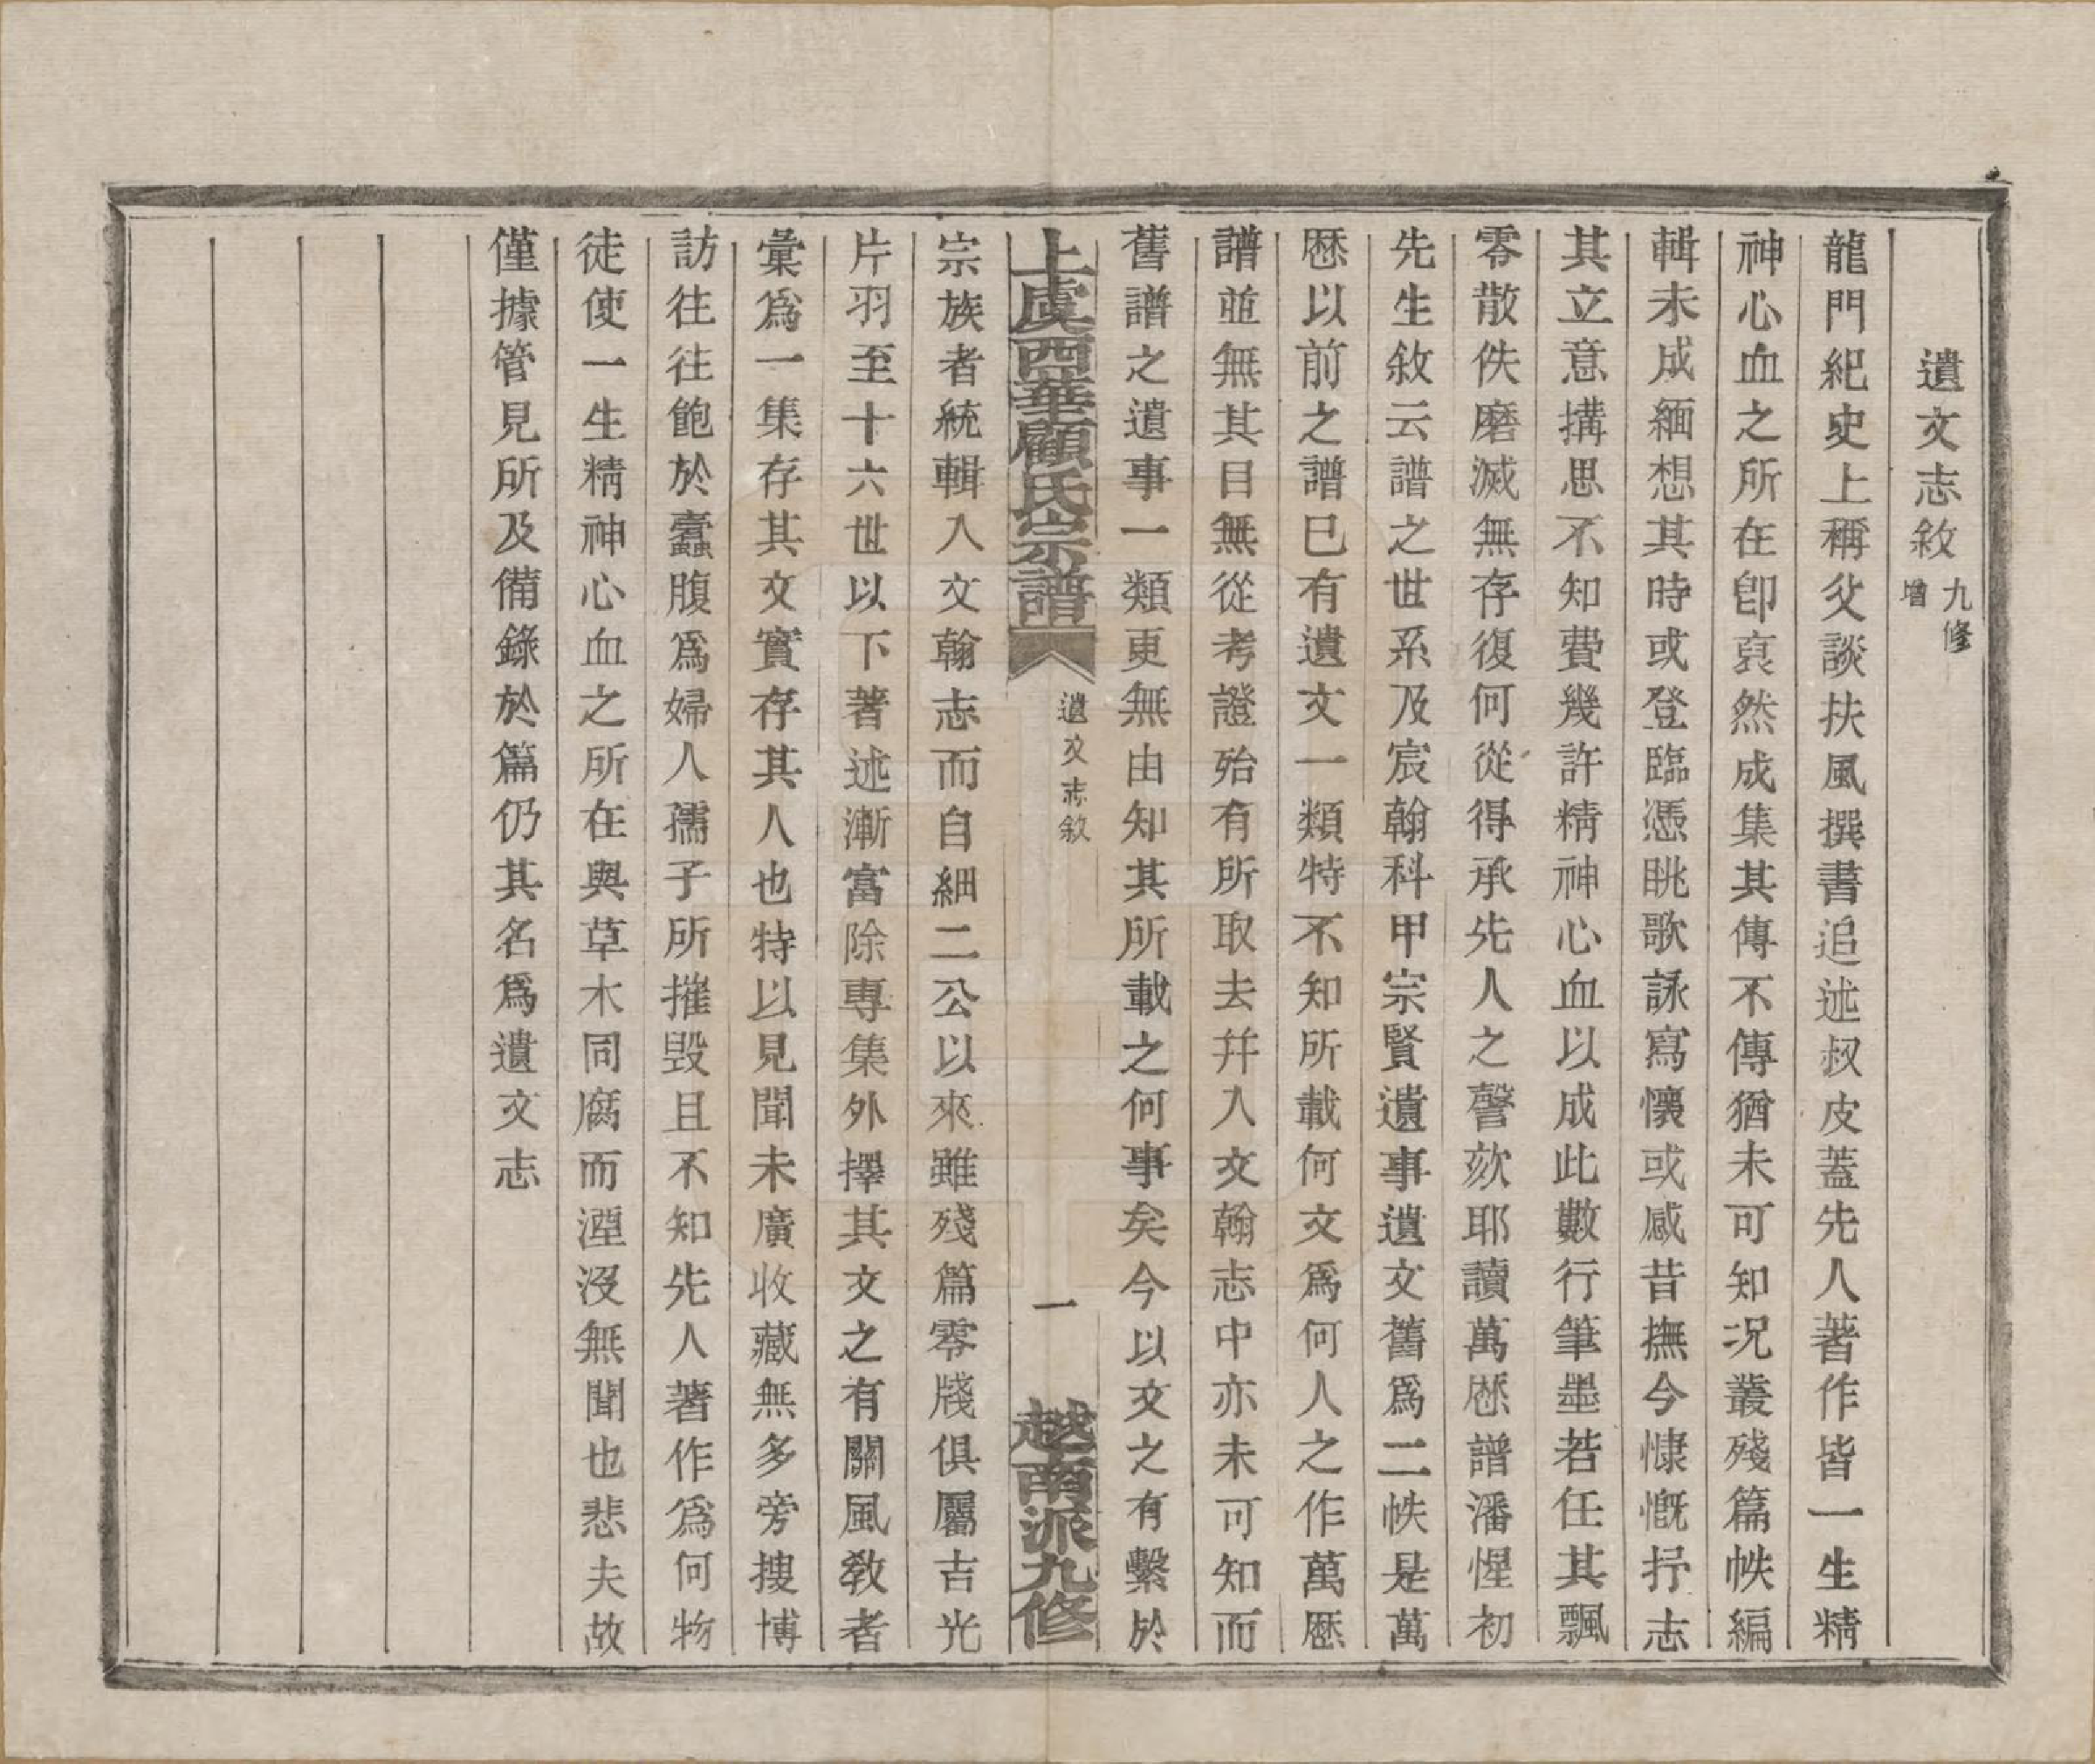 遺文志敘 九修增
龍門紀史上稱父談扶風撰書追述叔皮蓋先人著作皆一生精
神心血之所在卽裒然成集其傳不傳猶未可知况叢殘篇帙編
輯未成緬想其時或登臨憑眺歌詠寫懷或感昔撫今慷慨抒志
其立意搆思不知費幾許精神心血以成此數行筆墨若任其飄
零散佚磨滅無存復何從得承先人之謦欬耶讀萬歷譜潘惺初
先生敘云譜之世系及宸翰科甲宗賢遺事遺文舊爲二帙是萬
歷以前之譜已有遺文一類特不知所載何文爲何人之作萬歷
譜並無其目無從考證殆有所取去幷入文翰志中亦未可知而
舊譜之遺事一類更無由知其所載之何事矣今以文之有繫於
上虞西華顧氏宗譜 遺文志敘 一 越南派九修
宗族者統輯入文翰志而自細二公以來雖殘篇零牋俱屬吉光
片羽至十六世以下著述漸富除專集外擇其文之有關風敎者
彙爲一集存其文實存其人也特以見聞未廣收藏無多旁搜博
訪往往飽於蠹腹爲婦人孺子所摧毀且不知先人著作爲何物
徒使一生精神心血之所在與草木同腐而湮沒無聞也悲夫故
僅據管見所及備錄於篇仍其名爲遺文志